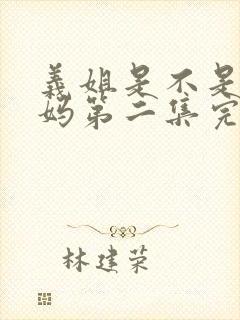 義姐是不是
妈第二集完
林建荣